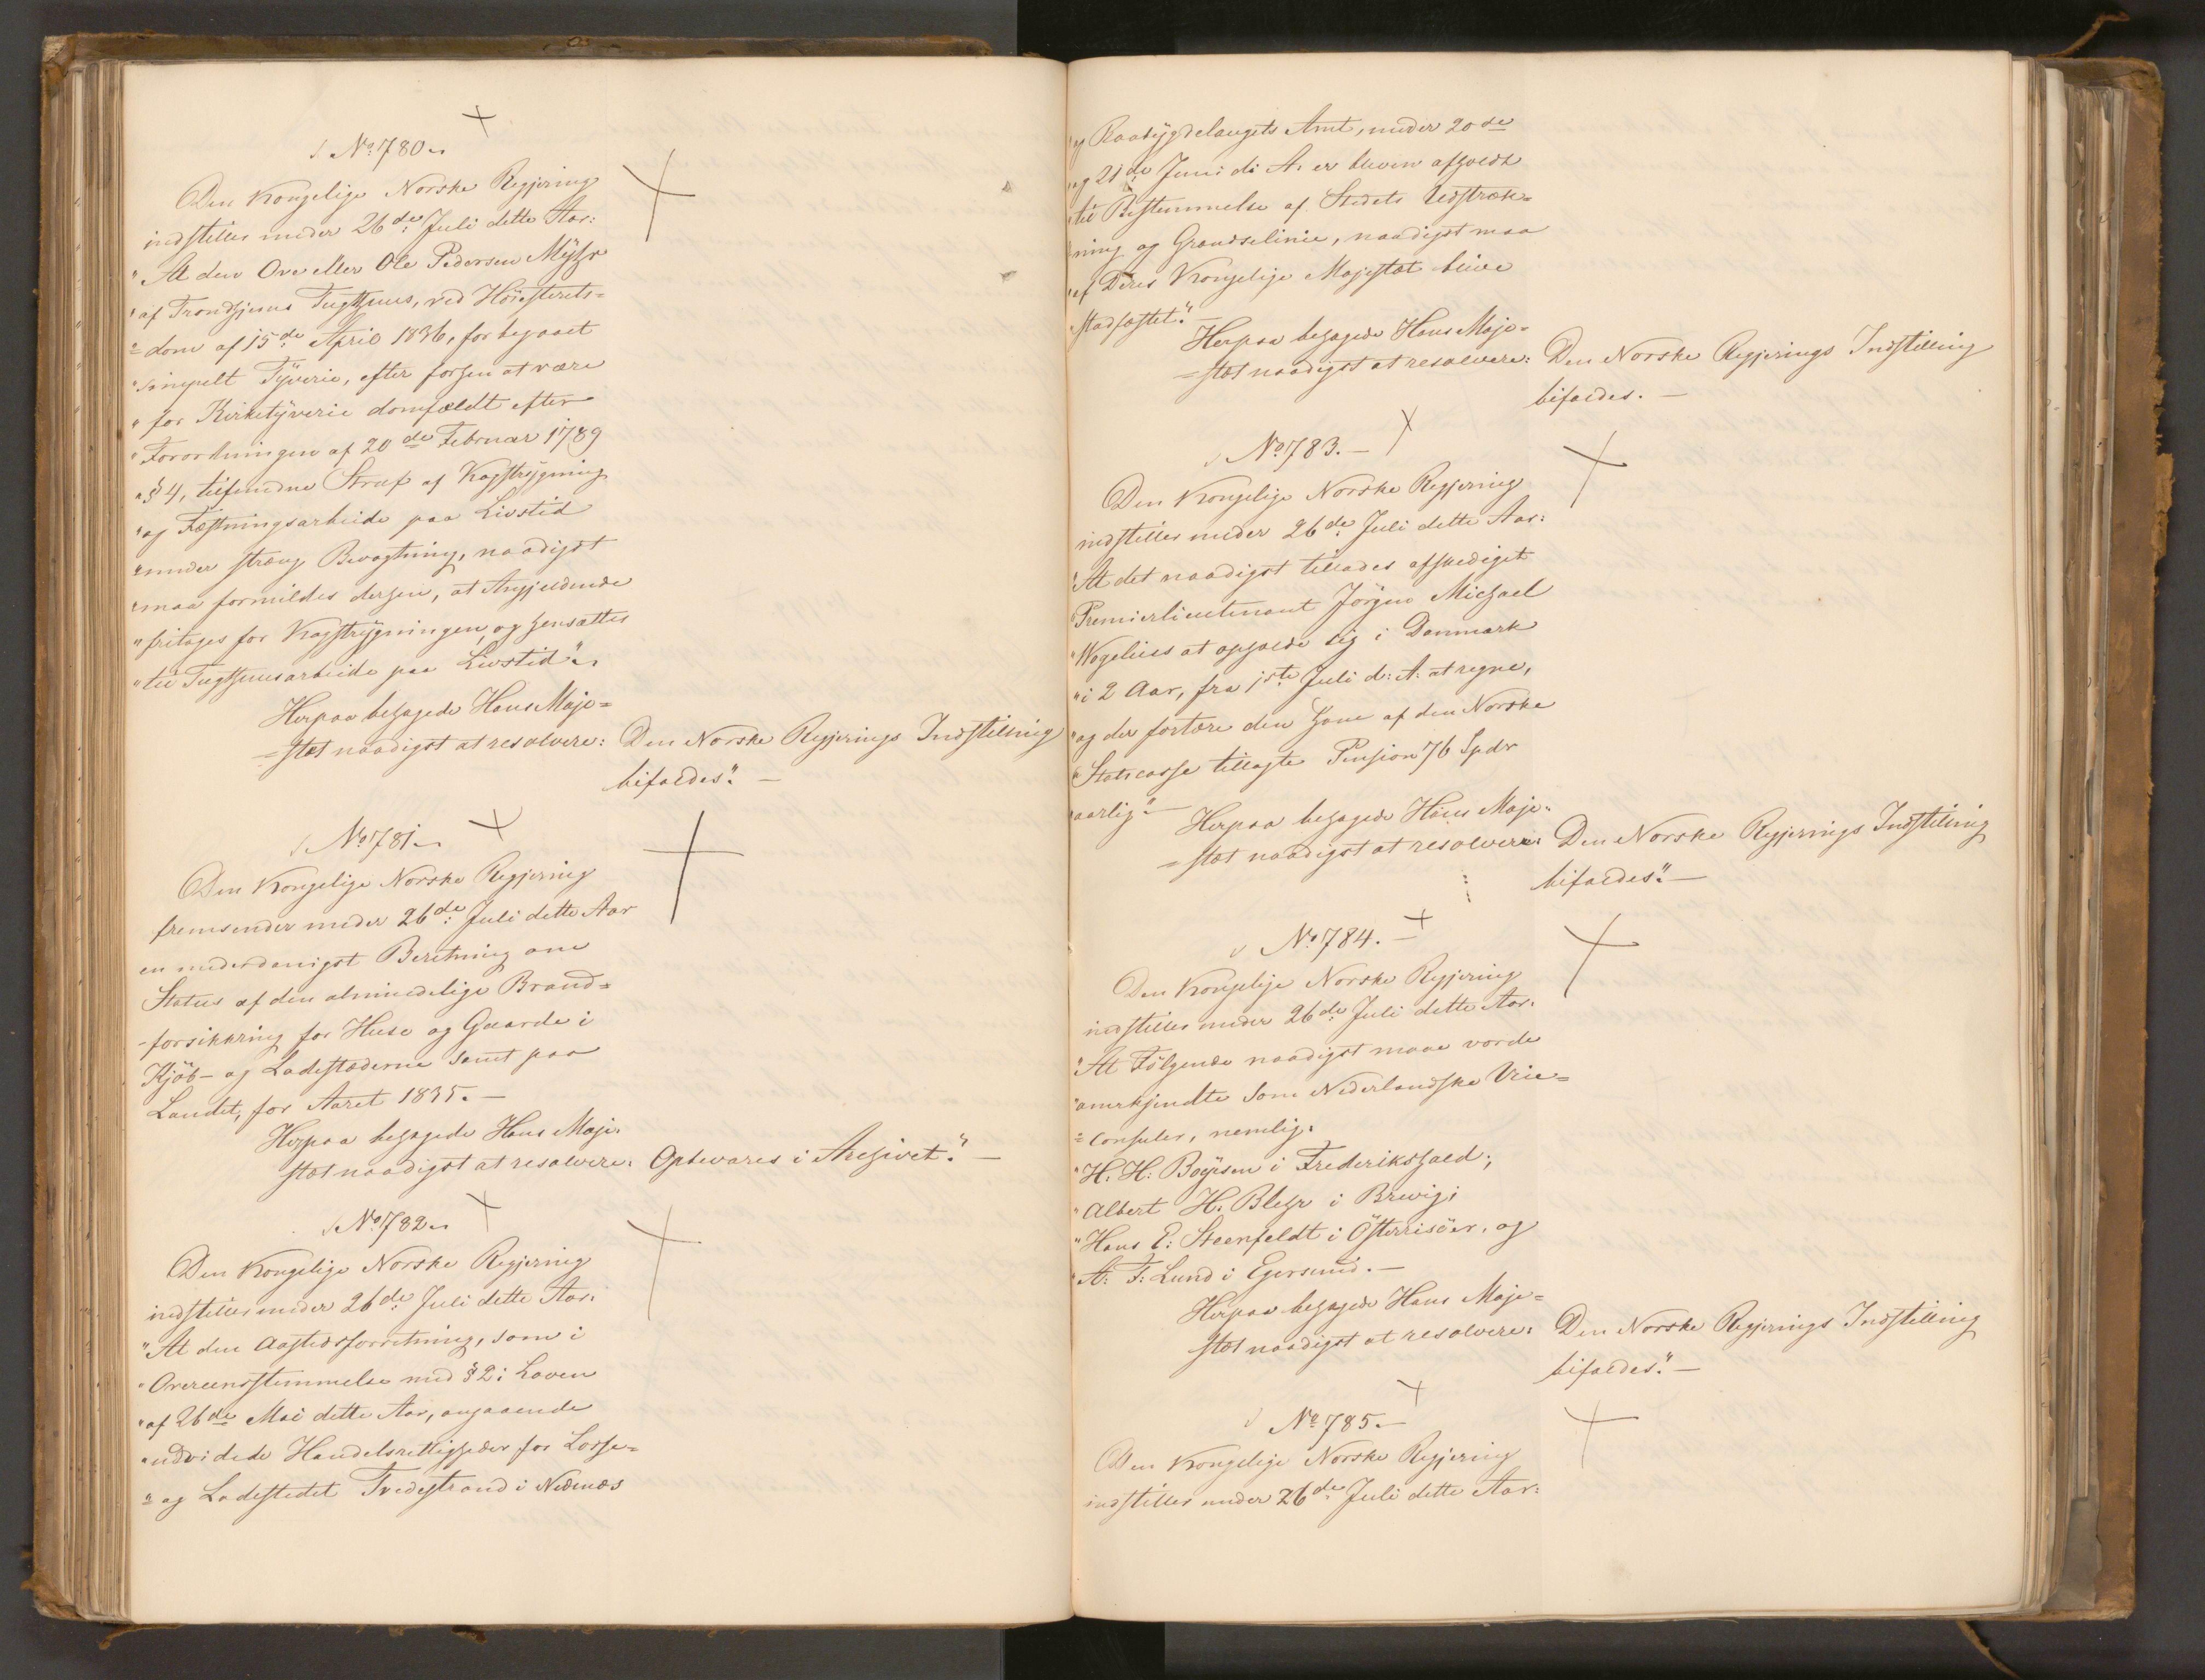 No 780.
Den Kongelige Norske Regjering
indstiller under 26de Juli dette Aar:
"At den Ove eller Ole Pedersen Myhr
"af Trondhjems Tugthuus, ved Höiesterets=
"=dom af 15de April 1836, for begaaet
"simpelt Tyverie, efter forhen at være
"for Kirketyverie domfældt efter
"Forordningen af 20de Februar 1789
"§ 4, tilfundne Straf af Kagstrygning
"og Fæstningsarbeide paa Livstid
"under stræng Bevogtning, naadigst
"maa formildes derhen, at Angjeldende
"fritages for Kagstrygningen, og hensættes
"til Tugthuusarbeide paa Livstid".
Herpaa behagede Hans Maje=
=stæt naadigst at resolvere: Den Norske Regjerings Indstilling
bifaldes". —
No 781.
Den Kongelige Norske Regjering
fremsender under 26de Juli dette Aar
en underdanigst Beretning om
Status af den almindelige Brand=
-forsikkring for Huse og Gaarde i
Kjöb- og Ladestæderne samt paa
Landet, for Aaret 1835. —
Herpaa behagede Hans Maje=
stæt naadigst at resolvere: Opbevares i Archivet". —
No 782.
Den Kongelige Norske Regjering
indstiller under 26de Juli dette Aar:
"At den Aastedsforretning, som i
"Overeensstemmelse med § 2 i Loven
"af 26de Mai dette Aar, angaaende
"udvidede Handelsrettigheder for Losse=
"= og Ladestedet Tvedestrand i Nedenæs
"og Raabygdelaugets Amt, under 20de
"og 21de Juni d: A: er bleven afholdt
"til Bestemmelse af Stedets Udstræk=
"ning og Grændselinie, naadigst maa
"af Deres Kongelige Majestæt blive
"stadfæstet". —
Herpaa behagede Hans Maje=
=stæt naadigst at resolvere: Den Norske Regjerings Indstilling
bifaldes. —
No 783. —
Den Kongelige Norske Regjering
indstiller under 26de Juli dette Aar:
"At det naadigst tillades afskediget
"Premierlieutenant Jörgen Michael
"Wogelius at opholde sig i Danmark
"i 2 Aar, fra 1ste Juli d: A: at regne,
"og der fortære den ham af den Norske
"Statscasse tillagte Pension 76 Spdr
"aarlig". —
Herpaa behagede Hans Maje=
=stæt naadigst at resolvere: Den Norske Regjerings Indstilling
bifaldes". —
No 784. —
Den Kongelige Norske Regjering
indstiller under 26de Juli dette Aar:
"At Fölgende naadigst maae vorde
"anerkjendte som Nederlandske Vice=
"=consuler, nemlig:
"H. H: Boyesen i Frederikshald;
"Albert H. Blehr i Brevig;
"Hans E: Steenfeldt i Österrisöer, og
"A: F: Lund i Egersund. —
Herpaa behagede Hans Maje=
stæt naadigst at resolvere: Den Norske Regjerings Indstilling
bifaldes". —
No 785. —
Den Kongelige Norske Regjering
indstiller under 26de Juli dette Aar: